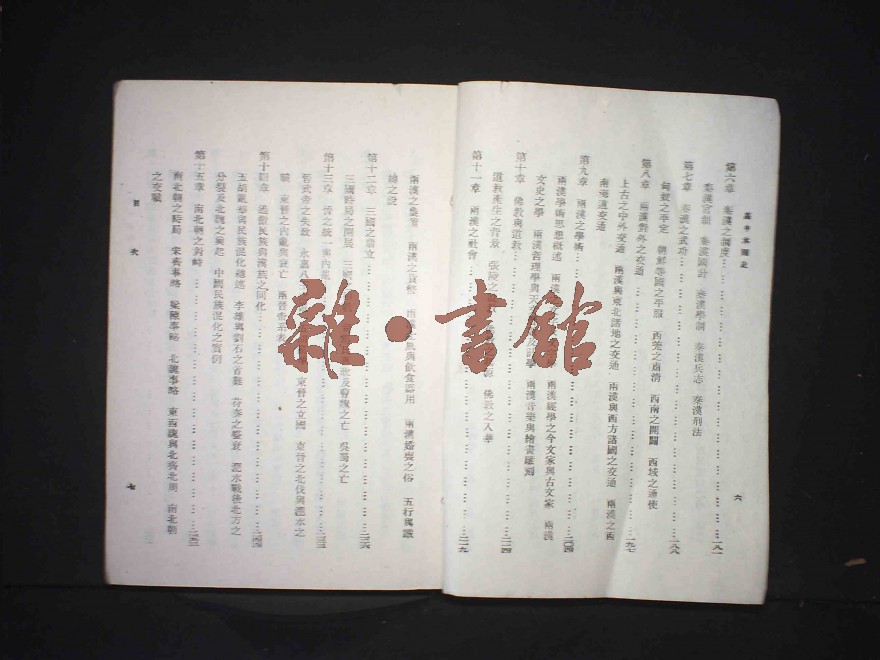 高中本國史
六
第六章 秦漢之制度………一八一
秦漢官制 秦漢國計 秦漢學制 秦漢兵志 秦漢刑法
第七章 秦漢之武功………一八八
匈奴之平定 朝鮮等國之平服 西羌之肅清 西南之開闢 西域之通使
第八章 兩漢對外之交通………一九七
上古之中外交通 兩漢與東北諸地之交通 兩漢與西方諸國之交通 兩漢之西
南海道交通
第九章 兩漢之學術………二〇四
兩漢學術思想概述 兩漢經學之今文家與古文家 兩漢
文史之學 兩漢哲理學與天 學 兩漢音樂與繪畫雕刻
第十章 佛教與道教………二一四
道教產生之背景 張陵之 佛教之入華
第十一章 兩漢之社會………二一九
兩漢之 兩漢之貨幣 兩漢 與飲食器用 兩漢婚喪之俗 五行與讖
緯之說
第十二章 三國之鼎立………二二六
三國時局之開展 三國 及曹魏之亡 吳蜀之亡
第十三章 晉之統一與內亂………二三三
晉武帝之失政 永嘉 東晉之立國 東晉之北伐與淝水之
戰 東晉之內亂與衰亡 兩晉帝系表
第十四章 邊徼民族與漢族之同化………二四四
五胡亂華與民族混化總述 李雄與劉石之首難 苻秦之盛衰 淝水戰後北方之
分裂及北魏之興起 中國民族混化之實例
第十五章 南北朝之對峙………二五三
南北朝之時局 宋齊事略 梁陳事略 北魏事略 東西魏與北齊北周 南北朝
之交戰
目次
七
雜·書館